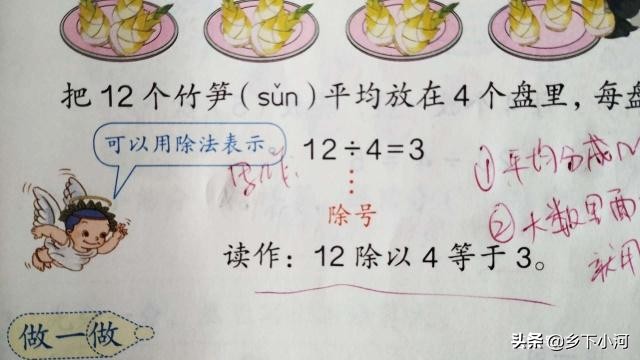 把12个竹笋（sǔn）平均放在4个盘里，每盘
可以用除法表示。
12÷4=3
①平均分成
除号
②大数里面
读作：12除以4等于3。
就用
做一做
头条@乡下小河